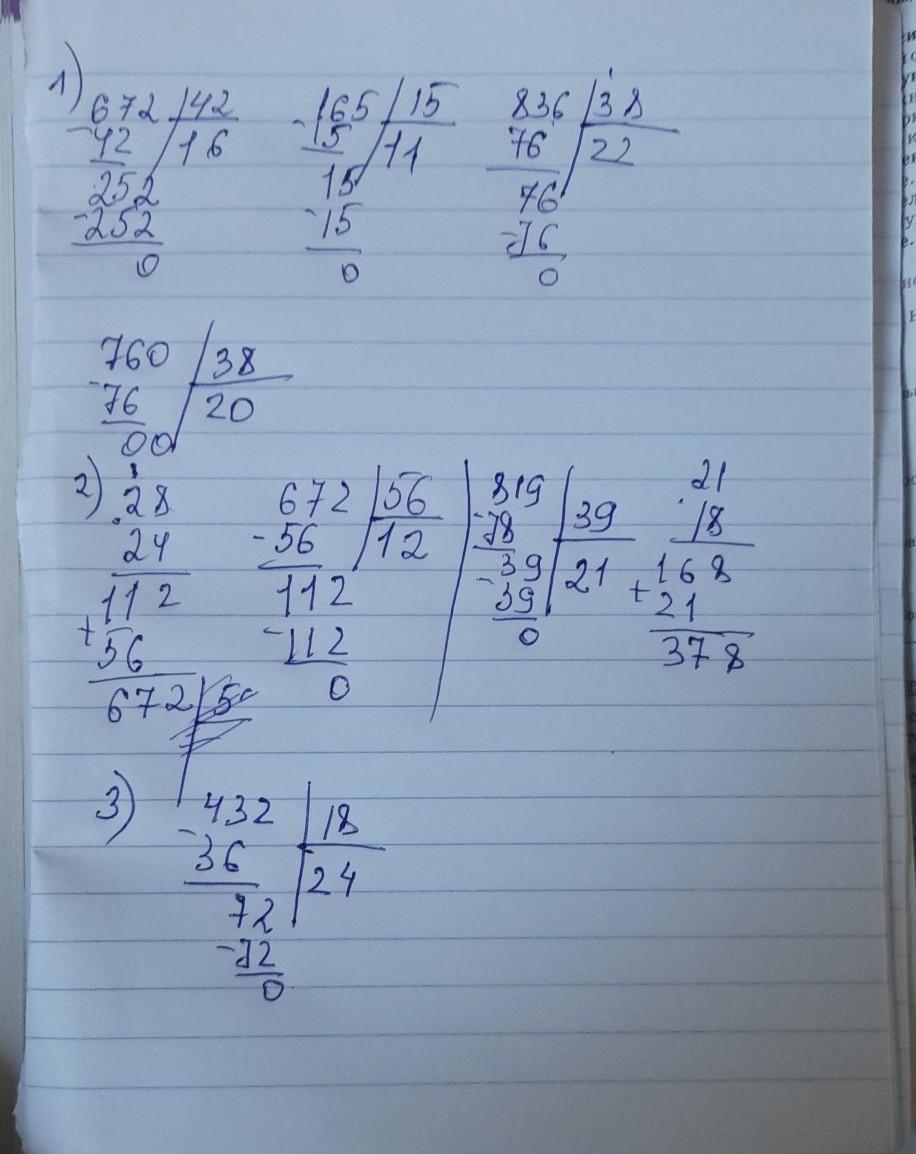 1)
672 | 42
-42 | 16
252
-252
0
165 | 15
-15 | 11
15
-15
0
836 | 38
76 | 22
76
-76
0
760 | 38
-76 | 20
00
2)
28
24
112
+
56
672
672 | 56
-56 | 12
112
-112
0
819 | 39
-78 | 21
39
-39
0
21
18
168
+21
378
3)
432 | 18
-36 | 24
72
-72
0